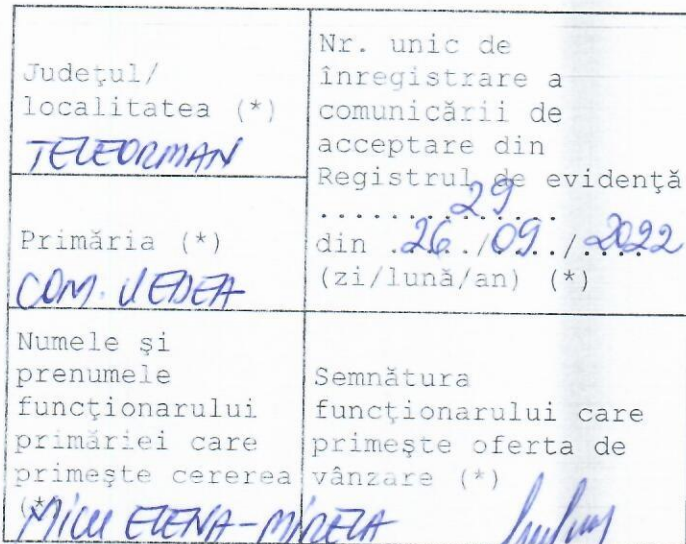 Județul/
localitatea (*)
TELEORMAN
Primăria (*)
COM. VEDEA
Nr. unic de
înregistrare a
comunicării de
acceptare din
Registrul de evidență
..............29
din .26../09../.2022
(zi/lună/an) (*)
Numele și
prenumele
funcționarului
primăriei care
primește cererea
(*)
MICU ELENA-MIRELA
Semnătura
funcționarului care
primește oferta de
vânzare (*)